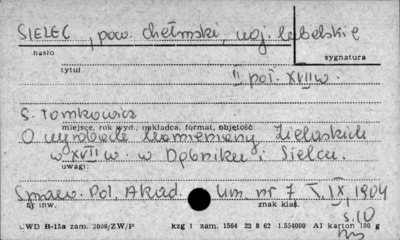 SIELEC, pow. chełmski, woj. lubelskie
hasło
sygnatura
tytuł
II poł. XVII w.
S. Tomkowicz
O wyrobach kamieniarzy
miejsce, rok wyd., nakładca, format, objętość
w XVII w. w Dębniku i Sielcu.
uwagi:
Spraw. Pol. Akad. Um. nr 7 T. IX, 1904
nr inw.
znak klas.
s. 10
CWD B-15a zam. 2000/ZW/P
kzg 1 zam. 1504 22 8 62 1.534000 A1 karton 180 g